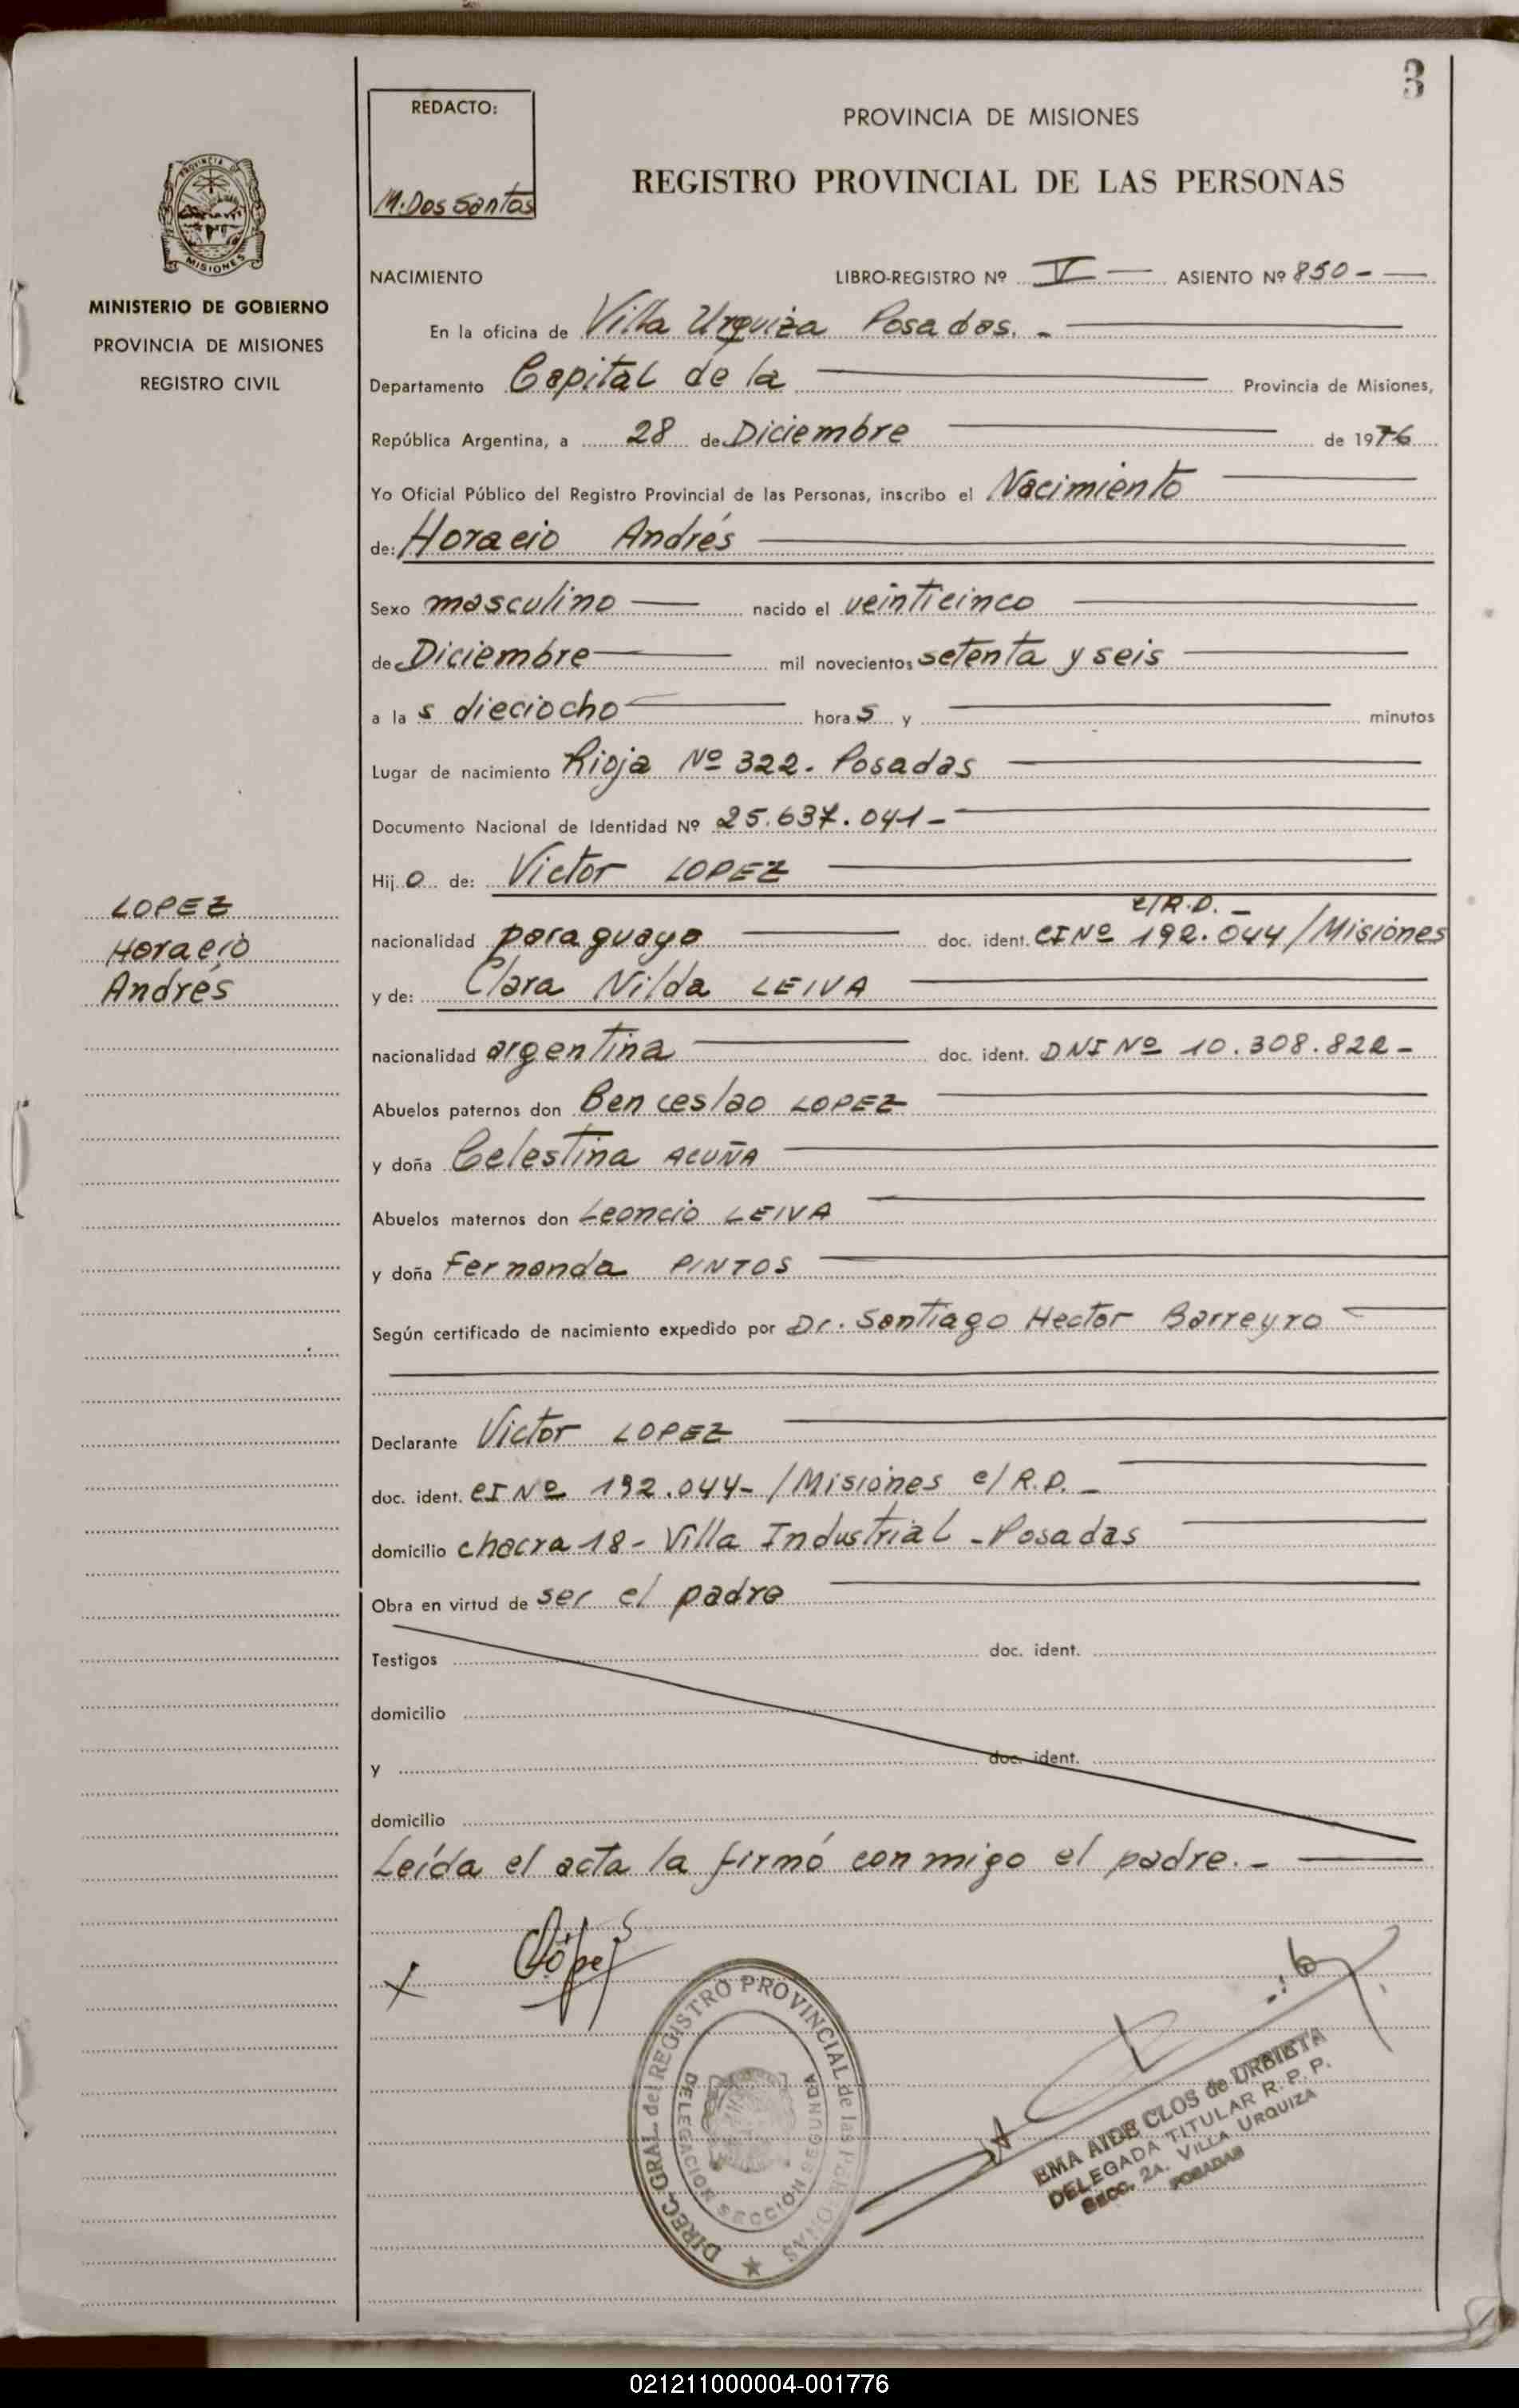 3
REDACTO:
M. Dos Santos
PROVINCIA DE MISIONES
REGISTRO PROVINCIAL DE LAS PERSONAS
PROVINCIA DE
MISIONES
MINISTERIO DE GOBIERNO
PROVINCIA DE MISIONES
REGISTRO CIVIL
NACIMIENTO LIBRO-REGISTRO Nº V — ASIENTO Nº 850 -
En la oficina de Villa Urquiza Posadas. -
Departamento Capital de la Provincia de Misiones,
República Argentina, a 28 de Diciembre de 1976
Yo Oficial Público del Registro Provincial de las Personas, inscribo el Nacimiento
de: Horacio Andrés
Sexo masculino nacido el veinticinco
de Diciembre mil novecientos setenta y seis
a la s dieciocho hora s y minutos
Lugar de nacimiento Rioja Nº 322. Posadas
Documento Nacional de Identidad Nº 25.637.041-
Hij o de: Victor LOPEZ
c/R.D. -
nacionalidad paraguaya doc. ident. CI Nº 192.044/Misiones
y de: Clara Nilda LEIVA
nacionalidad argentina doc. ident. DNI Nº 10.308.822-
Abuelos paternos don Benceslao LOPEZ
y doña Celestina ACUÑA
Abuelos maternos don Leoncio LEIVA
y doña Fernanda PINTOS
Según certificado de nacimiento expedido por Dr. Santiago Hector Barreyro
Declarante Victor LOPEZ
doc. ident. CI Nº 192.044-/Misiones c/R.D. -
domicilio chacra 18- Villa Industrial - Posadas
Obra en virtud de ser el padre
Testigos doc. ident.
domicilio
y doc. ident.
domicilio
Leída el acta la firmó conmigo el padre. -
LOPEZ
Horacio
Andrés
X Lópes
DIREC. GRAL. del REGISTRO PROVINCIAL de las PERSONAS
DELEGACION SECCION SEGUNDA
EMA AIDE CLOS de URBIETA
DELEGADA TITULAR R. P. P.
SECC. 2A. VILLA URQUIZA
POSADAS
021211000004-001776